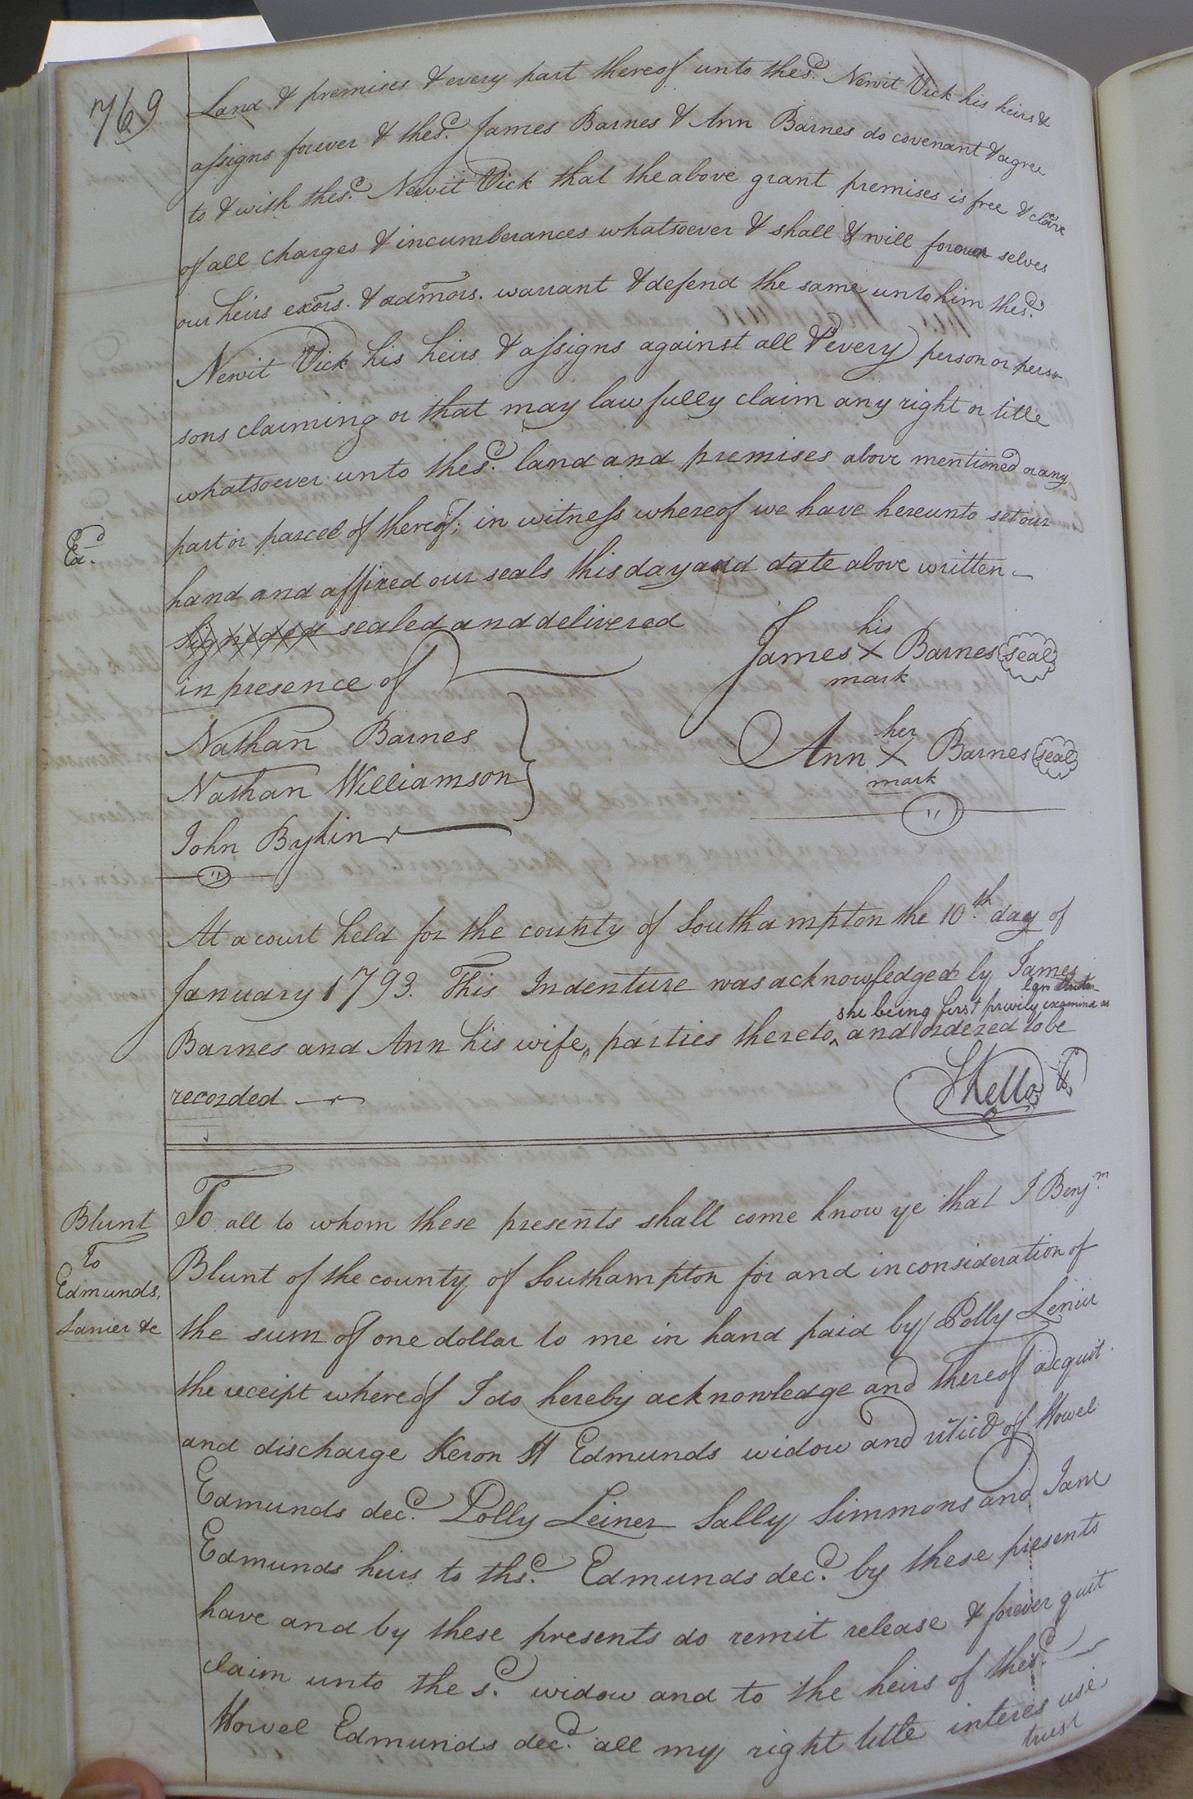 769
Land & premises & every part thereof unto the sd. Newit Vick his heirs &
assigns forever & the sd. James Barnes & Ann Barnes do covenant & agree
to & with the sd. Newit Vick that the above grant premises is free & cleare
of all charges & incumberances whatsoever & shall & will for our selves
our heirs exors. & admors. warrant & defend the same unto him the sd.
Newit Vick his heirs & assigns against all & every person or perso
sons claiming or that may lawfully claim any right or title
whatsoever unto the sd. land and premises above mentioned or any
part or parcel of thereof; in witness whereof we have hereunto set our
Ed.
hand and affixed our seals this day and date above written
Signeded sealed and delivered
in presence of
James his X mark Barnes seal
Nathan Barnes
Nathan Williamson
Ann her X mark Barnes seal
John Bykin
At a court held for the county of Southampton the 10th. day of
January 1793. This Indenture was acknowledged by James
she being first privily examined as
Barnes and Ann his wife, parties thereto, and ordered to be
recorded
SKello
To all to whom these presents shall come know ye that I Benjm.
Blunt
To
Edmunds,
Lanier &c
Blunt of the county of Southampton for and in consideration of
the sum of one dollar to me in hand paid by Polly Lenier
the receipt whereof I do hereby acknowledge and thereof acquit
and discharge Keron H Edmunds widow and of Howel
Edmunds decd. Polly Leiner Sally Simmons and Jane
Edmunds heirs to th sd. Edmunds decd. by these presents
have and by these presents do remit release & forever quit
claim unto the sd. widow and to the heirs of the sd.
Howel Edmunds decd. all my right title interes use
trust